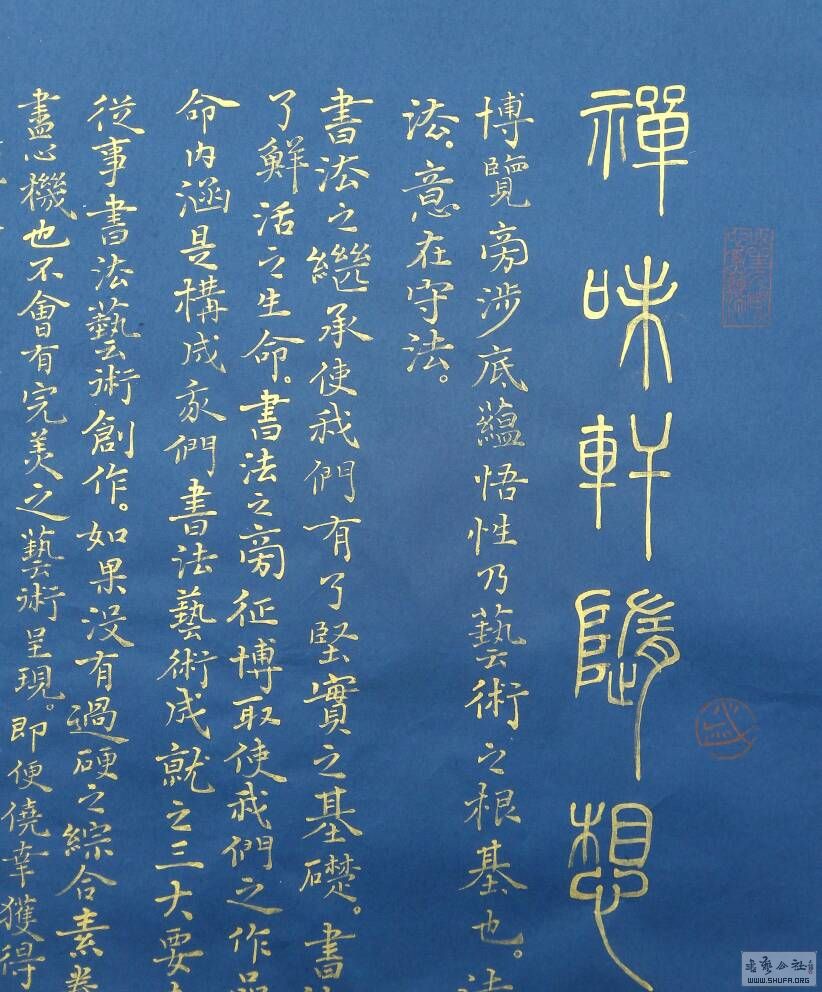 禪味軒隨想
博覽旁涉底蘊悟性乃藝術之根基也。法
法。意在守法。
書法之繼承使我們有了堅實之基礎。書法
了鮮活之生命。書法之旁征博取使我們之作品
命內涵是構成我們書法藝術成就之三大要
從事書法藝術創作。如果沒有過硬之綜合素養
盡心機也不會有完美之藝術呈現。即便僥幸獲得
書藝公社
WWW.SHUFA.ORG